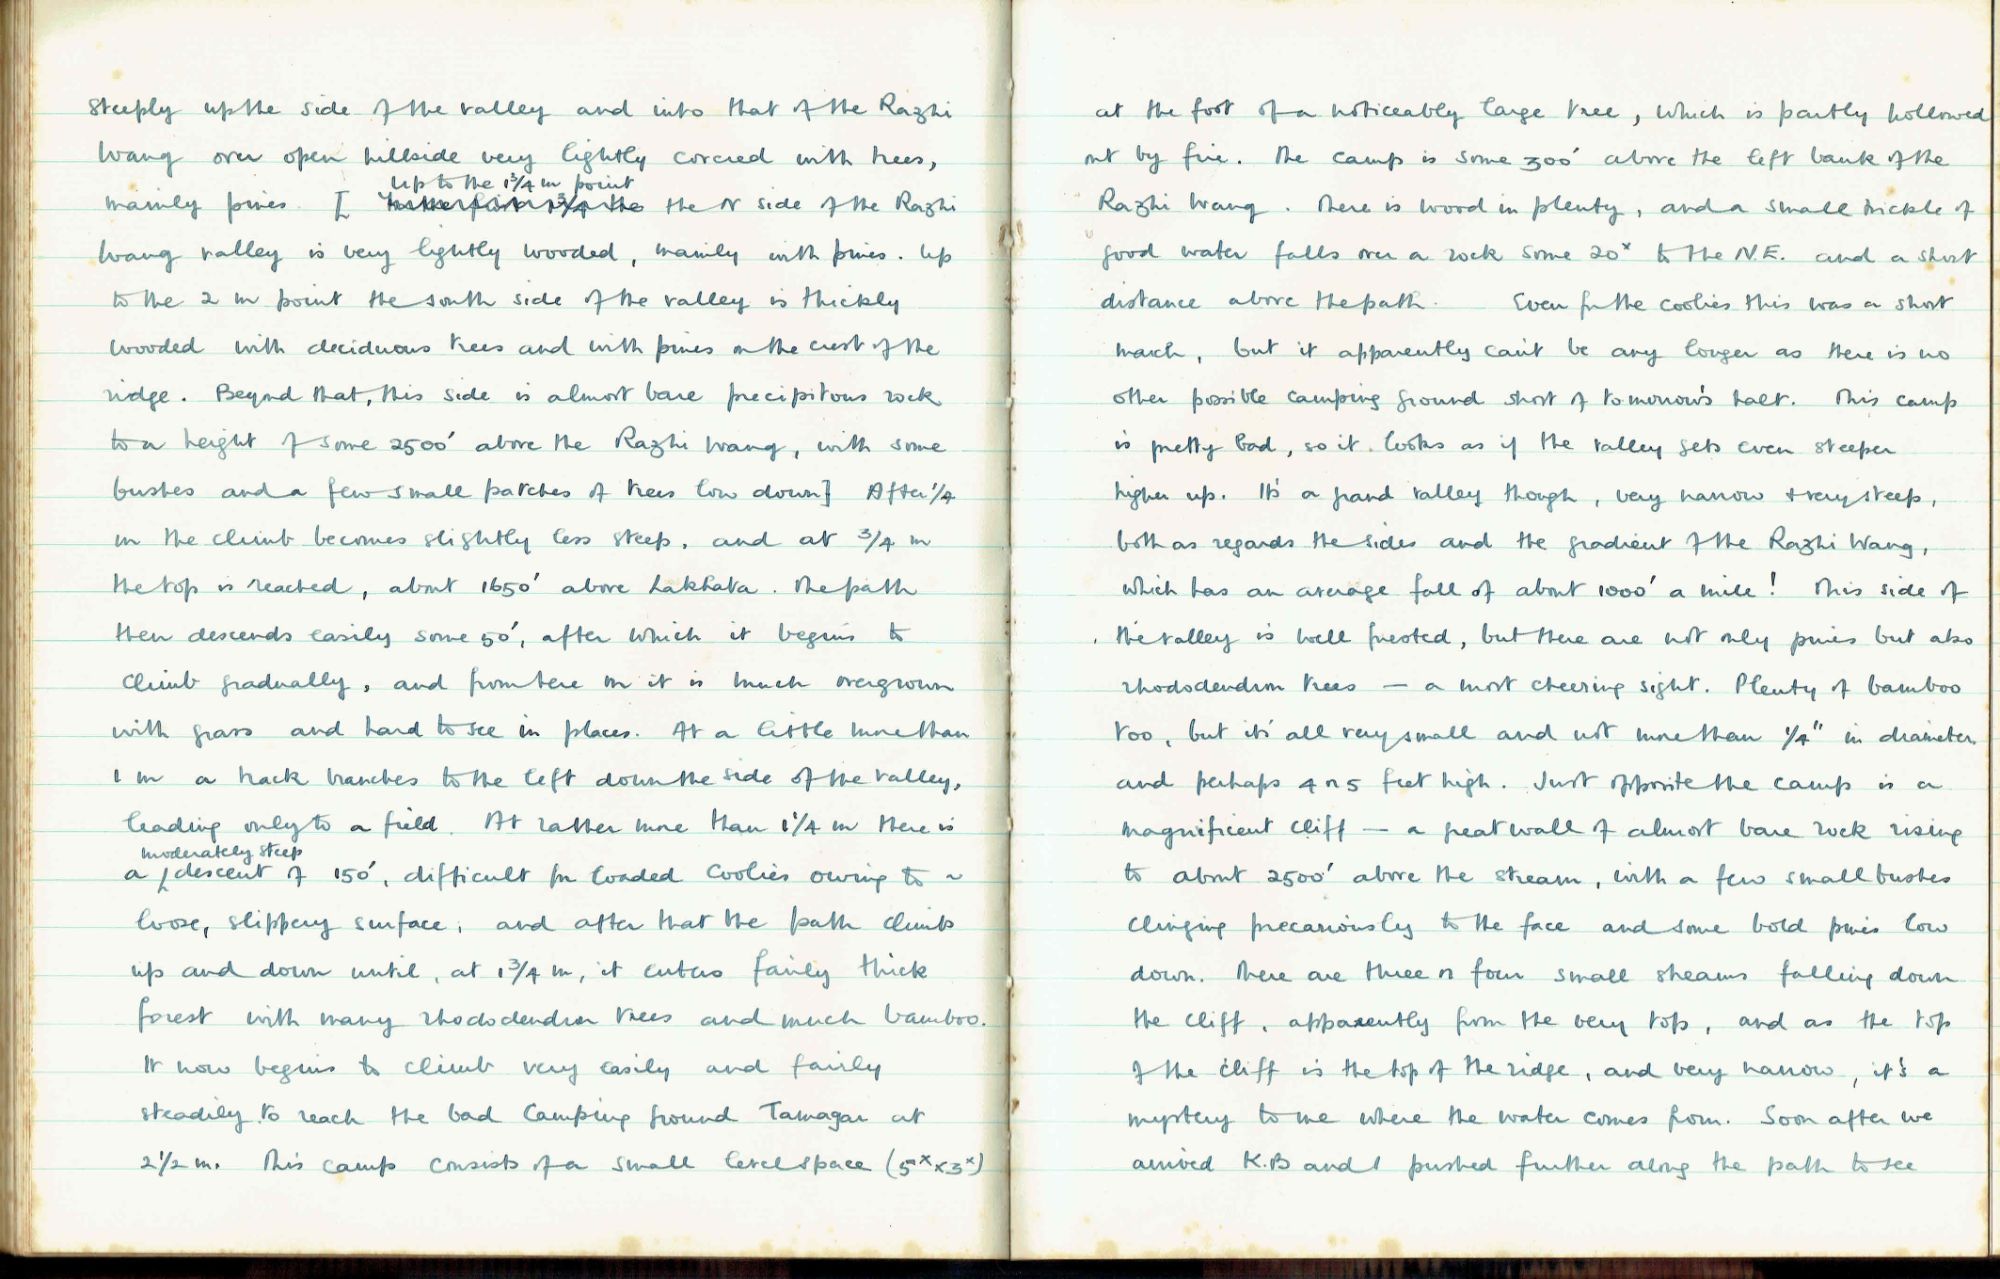 steeply up the side of the valley and into that of the Razhi
Wang over open hillside very lightly covered with trees,
mainly pines. [ Up to the 1¾ m point the N side of the Razhi
Wang valley is very lightly wooded, mainly with pines. Up
to the 2 m point the south side of the valley is thickly
wooded with deciduous trees and with pines on the crest of the
ridge. Beyond that, this side is almost bare precipitous rock
to a height of some 2500' above the Razhi Wang, with some
bushes and a few small patches of trees low down] After ¼
m the climb becomes slightly less steep, and at ¾ m
the top is reached, about 1650' above Lakhata. The path
then descends easily some 50', after which it begins to
climb gradually, and from here on it is much overgrown
with grass and hard to see in places. At a little more than
1 m a track branches to the left down the side of the valley,
leading only to a field. At rather more than 1¼ m there is
a moderately steep descent of 150', difficult for loaded coolies owing to a
loose, slippery surface, and after that the path climbs
up and down until, at 1¾ m, it enters fairly thick
forest with many rhododendron trees and much bamboo.
It now begins to climb very easily and fairly
steadily to reach the bad camping ground Tamagar at
2½ m. This camp consists of a small level space (5ˣ x 3ˣ)
at the foot of a noticeably large tree, which is partly hollowed
out by fire. The camp is some 300' above the left bank of the
Razhi Wang. There is wood in plenty, and a small trickle of
good water falls over a rock some 20ˣ to the N.E. and a short
distance above the path. Even for the coolies this was a short
march, but it apparently can't be any longer as there is no
other possible camping ground short of tomorrow's halt. This camp
is pretty bad, so it looks as if the valley gets even steeper
higher up. It's a grand valley though, very narrow & very steep,
both as regards the sides and the gradient of the Razhi Wang,
which has an average fall of about 1000' a mile! This side of
the valley is well forested, but there are not only pines but also
rhododendron trees — a most cheering sight. Plenty of bamboo
too, but it's all very small and not more than ¼" in diameter
and perhaps 4 or 5 feet high. Just opposite the camp is a
magnificent cliff — a great wall of almost bare rock rising
to about 2500' above the stream, with a few small bushes
clinging precariously to the face and some bold pines low
down. There are three or four small streams falling down
the cliff, apparently from the very top, and as the top
of the cliff is the top of the ridge, and very narrow, it's a
mystery to me where the water comes from. Soon after we
arrived K.B and I pushed further along the path to see